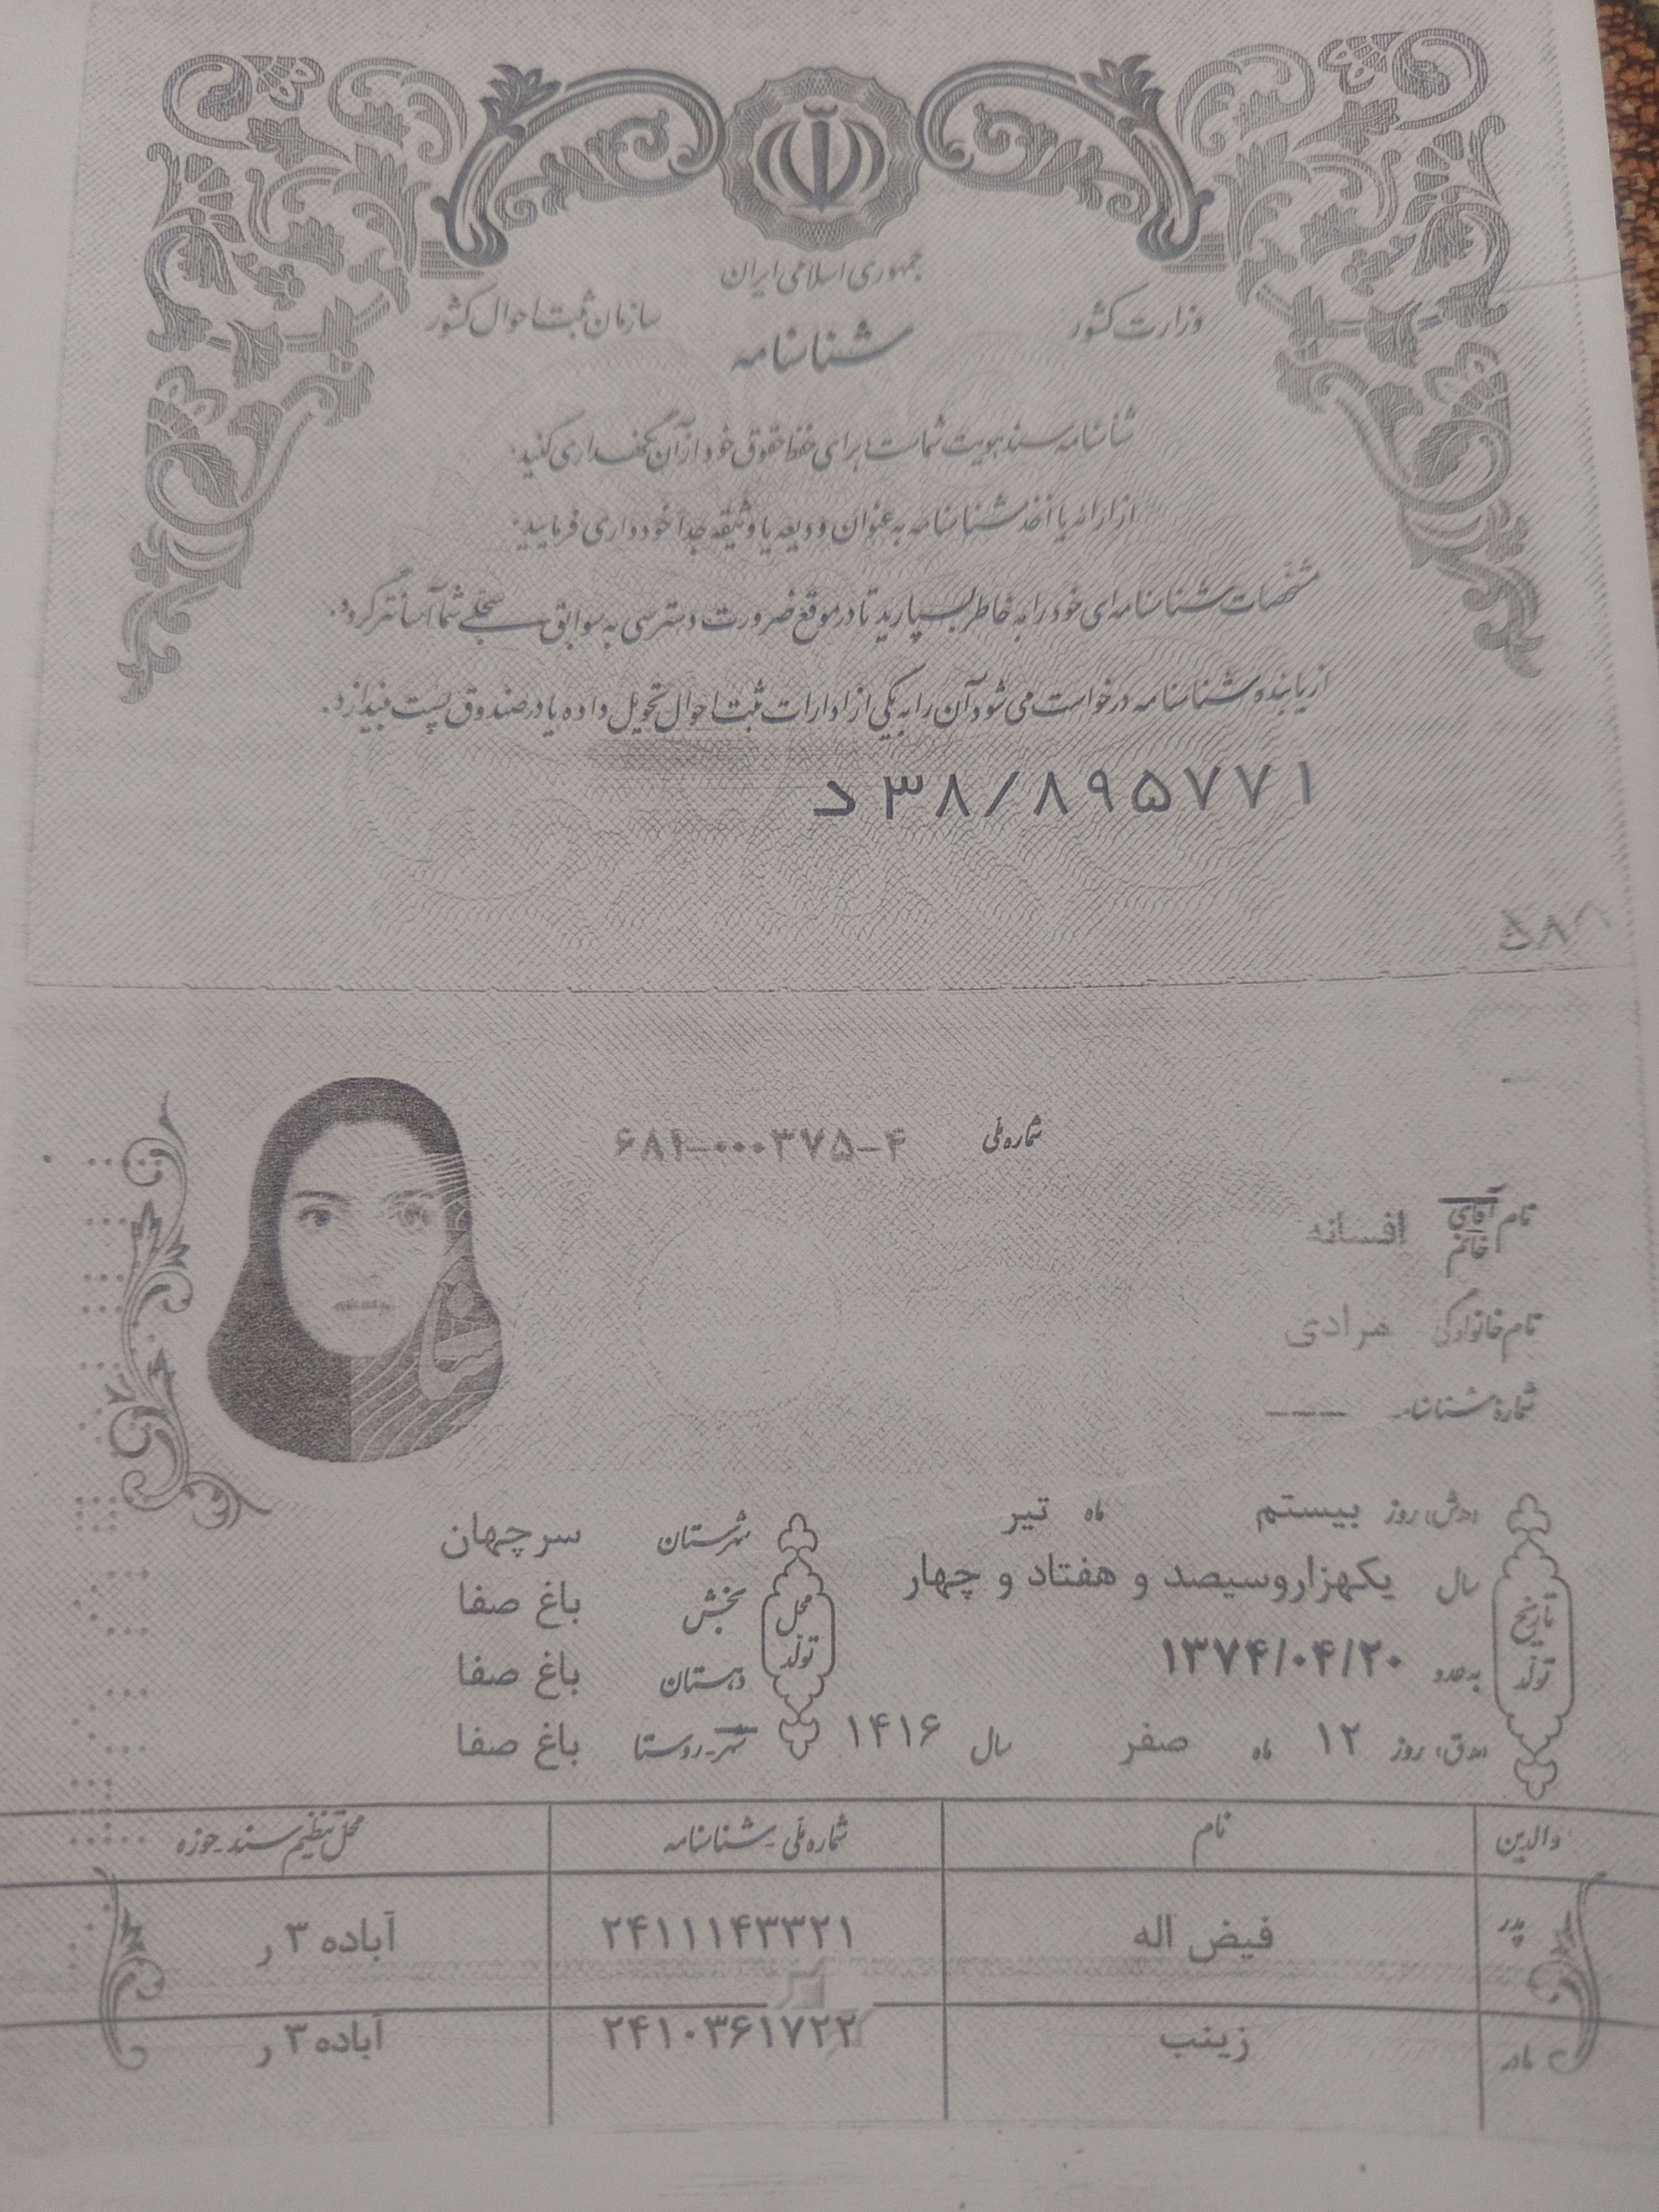 جمهوری اسلامی ایران
وزارت کشور
سازمان ثبت احوال کشور
شناسنامه
شناسنامه سند هویت شماست برای حفظ حقوق خود از آن نگهداری کنید.
از ارائه یا اخذ شناسنامه به عنوان ودیعه یا وثیقه جداً خودداری فرمایید.
مشخصات شناسنامه‌ای خود را به خاطر بسپارید تا در موقع ضرورت دسترسی به سوابق سجلی شما آسانتر گردد.
از یابنده شناسنامه درخواست می‌شود آن را به یکی از ادارات ثبت احوال تحویل داده یا در صندوق پست بیندازد.
د۳۸/۸۹۵۷۷۱
شماره ملی ۶۸۲-۰۰۰۳۷۵-۴
نام آقای خانم افسانه
نام خانوادگی مرادی
شماره شناسنامه ---
تاریخ تولد
(ه‍.ش) روز بیستم ماه تیر
سال یکهزاروسیصد و هفتاد و چهار
به عدد ۱۳۷۴/۰۴/۲۰
(ه‍.ق) روز ۱۲ ماه صفر سال ۱۴۱۶
محل تولد
شهرستان سرچهان
بخش باغ صفا
دهستان باغ صفا
شهر-روستا باغ صفا
والدین نام شماره ملی-شناسنامه محل تنظیم سند-حوزه
پدر فیض اله ۲۴۱۱۱۴۳۳۲۱ آباده ۳ ر
مادر زینب ۲۴۱۰۳۶۱۷۲۲ آباده ۳ ر